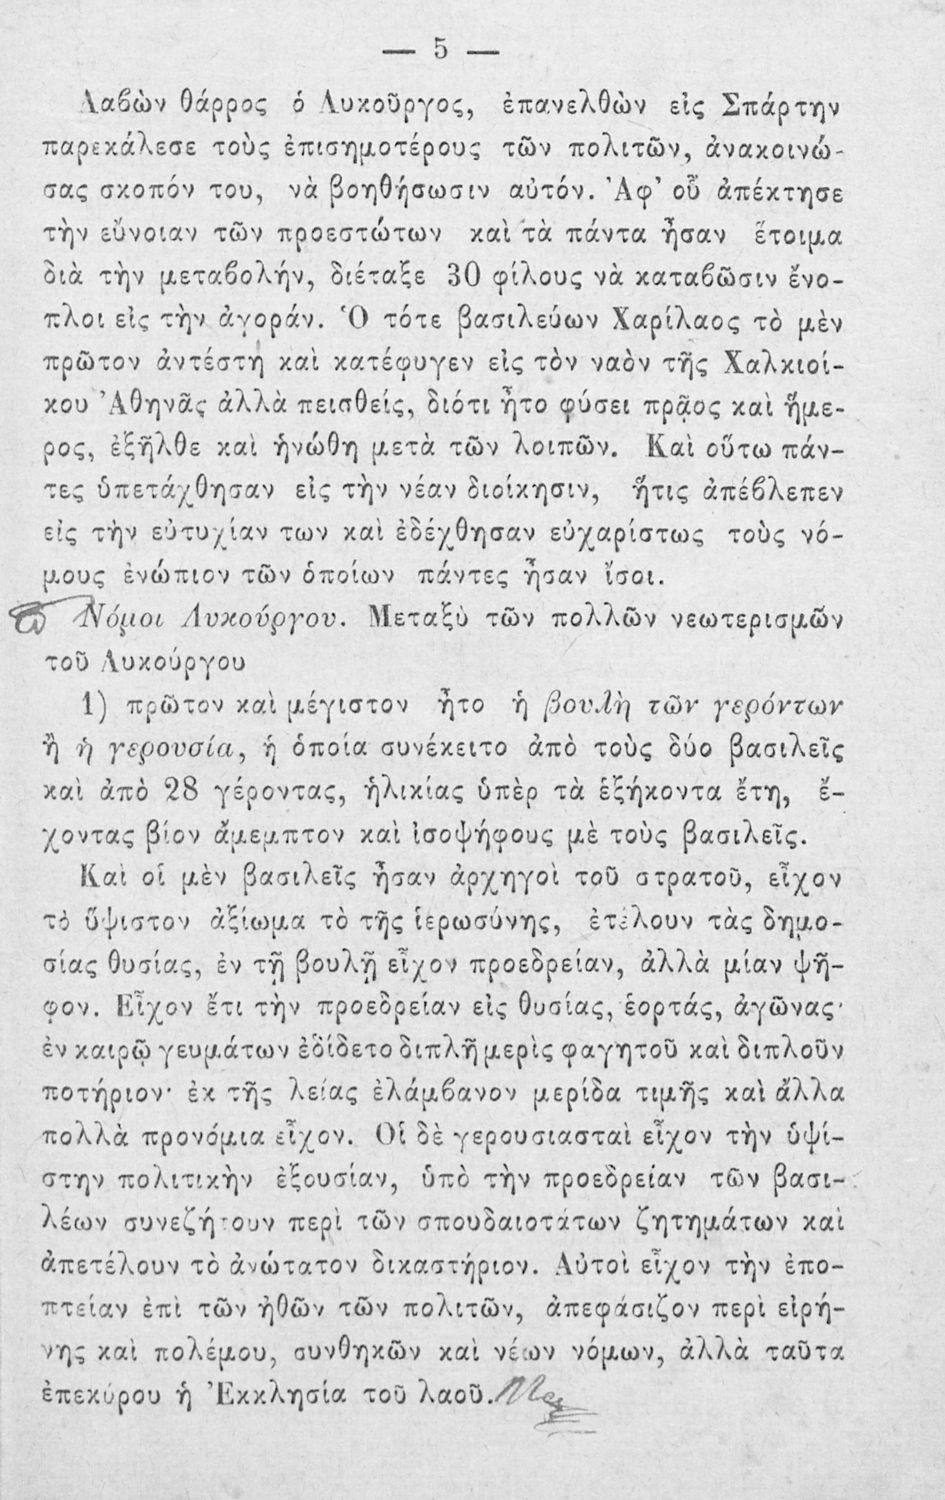 — 5 —
Λαβὼν θάρρος ὁ Λυκοῦργος, ἐπανελθὼν εἰς Σπάρτην
παρεκάλεσε τοὺς ἐπισημοτέρους τῶν πολιτῶν, ἀνακοινώ-
σας σκοπόν του, νὰ βοηθήσωσιν αὐτόν. Ἀφ’ οὗ ἀπέκτησε
τὴν εὔνοιαν τῶν προεστώτων καὶ τὰ πάντα ἦσαν ἕτοιμα
διὰ τὴν μεταβολήν, διέταξε 30 φίλους νὰ καταβῶσιν ἔνο-
πλοι εἰς τὴν ἀγοράν. Ὁ τότε βασιλεύων Χαρίλαος τὸ μὲν
πρῶτον ἀντέστη καὶ κατέφυγεν εἰς τὸν ναὸν τῆς Χαλκιοί-
κου Ἀθηνᾶς ἀλλὰ πεισθείς, διότι ἦτο φύσει πρᾷος καὶ ἥμε-
ρος, ἐξῆλθε καὶ ἡνώθη μετὰ τῶν λοιπῶν. Καὶ οὕτω πάν-
τες ὑπετάχθησαν εἰς τὴν νέαν διοίκησιν, ἥτις ἀπέβλεπεν
εἰς τὴν εὐτυχίαν των καὶ ἐδέχθησαν εὐχαρίστως τοὺς νό-
μους ἐνώπιον τῶν ὁποίων πάντες ἦσαν ἴσοι.
Νόμοι Λυκούργου. Μεταξὺ τῶν πολλῶν νεωτερισμῶν
τοῦ Λυκούργου
1) πρῶτον καὶ μέγιστον ἦτο ἡ βουλὴ τῶν γερόντων
ἢ ἡ γερουσία, ἡ ὁποία συνέκειτο ἀπὸ τοὺς δύο βασιλεῖς
καὶ ἀπὸ 28 γέροντας, ἡλικίας ὑπὲρ τὰ ἑξήκοντα ἔτη, ἔ-
χοντας βίον ἄμεμπτον καὶ ἰσοψήφους μὲ τοὺς βασιλεῖς.
Καὶ οἱ μὲν βασιλεῖς ἦσαν ἀρχηγοὶ τοῦ στρατοῦ, εἶχον
τὸ ὕψιστον ἀξίωμα τὸ τῆς ἱερωσύνης, ἐτέλουν τὰς δημο-
σίας θυσίας, ἐν τῇ βουλῇ εἶχον προεδρείαν, ἀλλὰ μίαν ψῆ-
φον. Εἶχον ἔτι τὴν προεδρείαν εἰς θυσίας, ἑορτάς, ἀγῶνας·
ἐν καιρῷ γευμάτων ἐδίδετο διπλῆ μερὶς φαγητοῦ καὶ διπλοῦν
ποτήριον· ἐκ τῆς λείας ἐλάμβανον μερίδα τιμῆς καὶ ἄλλα
πολλὰ προνόμια εἶχον. Οἱ δὲ γερουσιασταὶ εἶχον τὴν ὑψί-
στην πολιτικὴν ἐξουσίαν, ὑπὸ τὴν προεδρείαν τῶν βασι-
λέων συνεζήτουν περὶ τῶν σπουδαιοτάτων ζητημάτων καὶ
ἀπετέλουν τὸ ἀνώτατον δικαστήριον. Αὐτοὶ εἶχον τὴν ἐπο-
πτείαν ἐπὶ τῶν ἠθῶν τῶν πολιτῶν, ἀπεφάσιζον περὶ εἰρή-
νης καὶ πολέμου, συνθηκῶν καὶ νέων νόμων, ἀλλὰ ταῦτα
ἐπεκύρου ἡ Ἐκκλησία τοῦ λαοῦ.